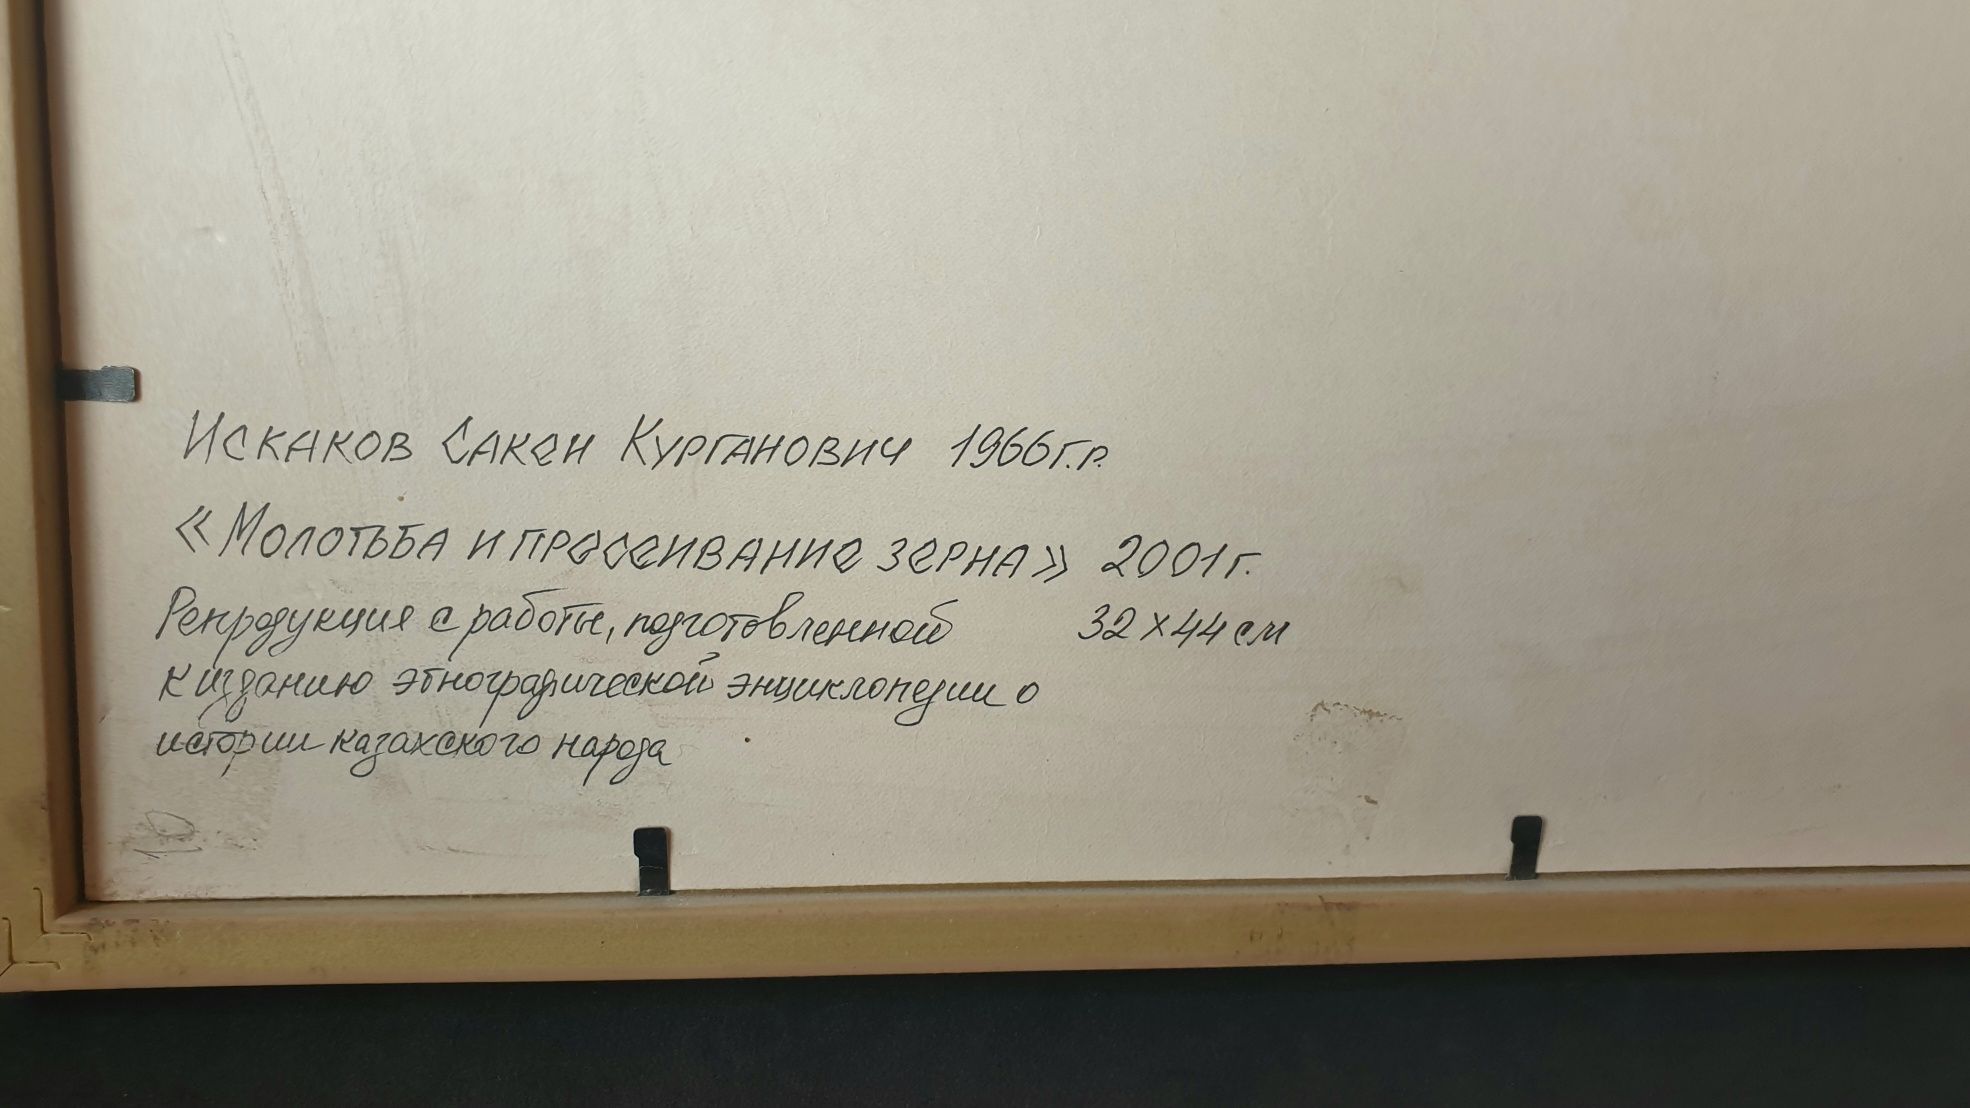 Искаков Сакен Курганович 1966г.р.
«Молотьба и просеивание зерна» 2001г.
Репродукция с работы, подготовленной 32×44 см
к изданию этнографической энциклопедии о
истории казахского народа